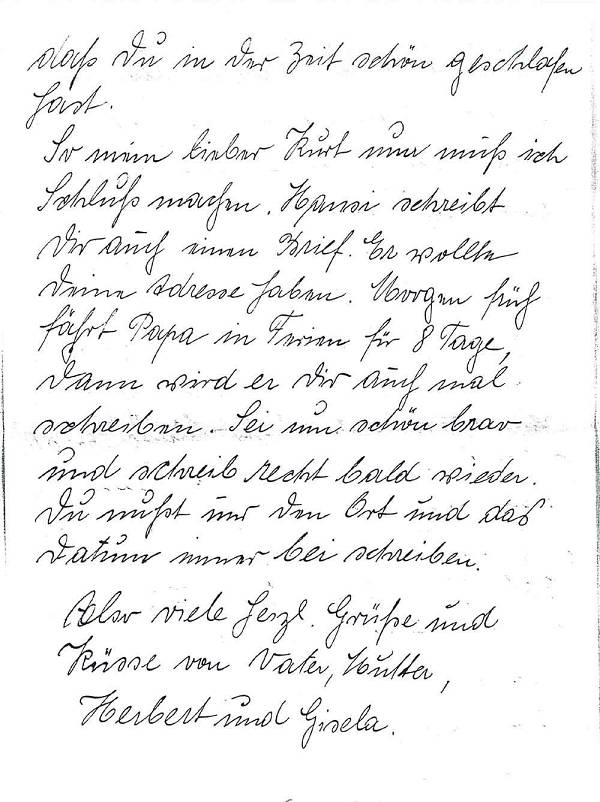 daß Du in der Zeit schön geschlafen
hast.
So mein lieber Kurt nun muß ich
Schluß machen. Hansi schreibt
Dir auch einen Brief. Er wollte
Deine Adresse haben. Morgen früh
fährt Papa in Ferien für 8 Tage,
dann wird er Dir auch mal
schreiben. Sei nun schön brav
und schreib recht bald wieder.
Du mußt nur den Ort und das
Datum immer bei schreiben.
Also viele herzl. Grüße und
Küsse von Vater, Mutter,
Herbert und Gisela.